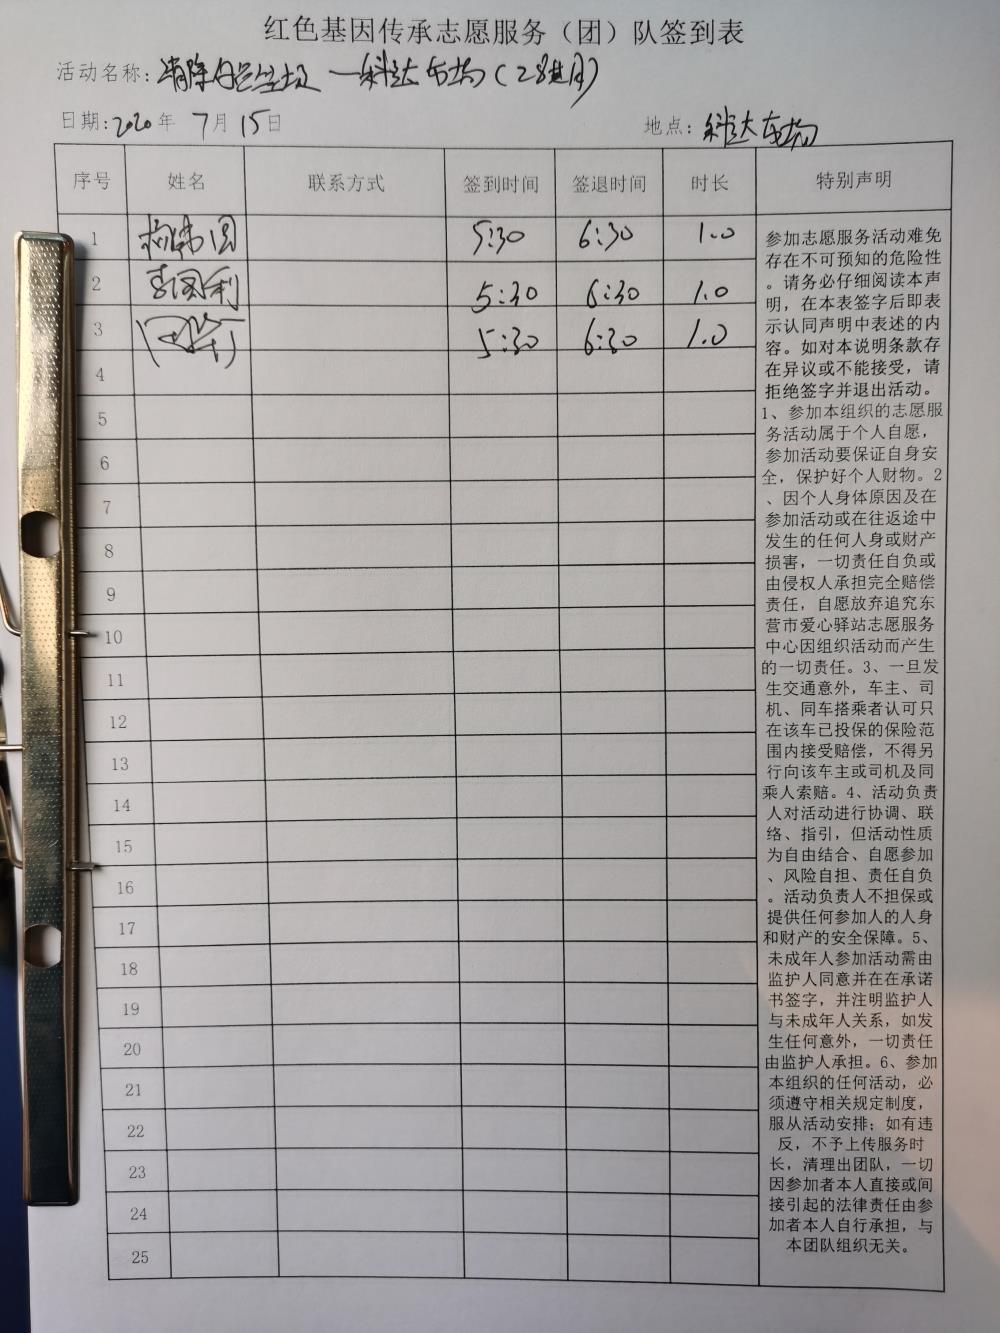 红色基因传承志愿服务（团）队签到表
活动名称：清除 科达
日期：2020年 7月 15日
地点：科达车场
序号 姓名 联系方式 签到时间 签退时间 时长 特别声明
1 5:30 6:30 1.0
2 李国利 5:30 6:30 1.0
3 5:30 6:30 1.0
4
5
6
7
8
9
10
11
12
13
14
15
16
17
18
19
20
21
22
23
24
25
参加志愿服务活动难免
存在不可预知的危险性
。请务必仔细阅读本声
明，在本表签字后即表
示认同声明中表述的内
容。如对本说明条款存
在异议或不能接受，请
拒绝签字并退出活动。
1、参加本组织的志愿服
务活动属于个人自愿，
参加活动要保证自身安
全，保护好个人财物。2
、因个人身体原因及在
参加活动或在往返途中
发生的任何人身或财产
损害，一切责任自负或
由侵权人承担完全赔偿
责任，自愿放弃追究东
营市爱心驿站志愿服务
中心因组织活动而产生
的一切责任。3、一旦发
生交通意外，车主、司
机、同车搭乘者认可只
在该车已投保的保险范
围内接受赔偿，不得另
行向该车主或司机及同
乘人索赔。4、活动负责
人对活动进行协调、联
络、指引，但活动性质
为自由结合、自愿参加
、风险自担、责任自负
。活动负责人不担保或
提供任何参加人的人身
和财产的安全保障。5、
未成年人参加活动需由
监护人同意并在在承诺
书签字，并注明监护人
与未成年人关系，如发
生任何意外，一切责任
由监护人承担。6、参加
本组织的任何活动，必
须遵守相关规定制度，
服从活动安排；如有违
反，不予上传服务时
长，清理出团队，一切
因参加者本人直接或间
接引起的法律责任由参
加者本人自行承担，与
本团队组织无关。